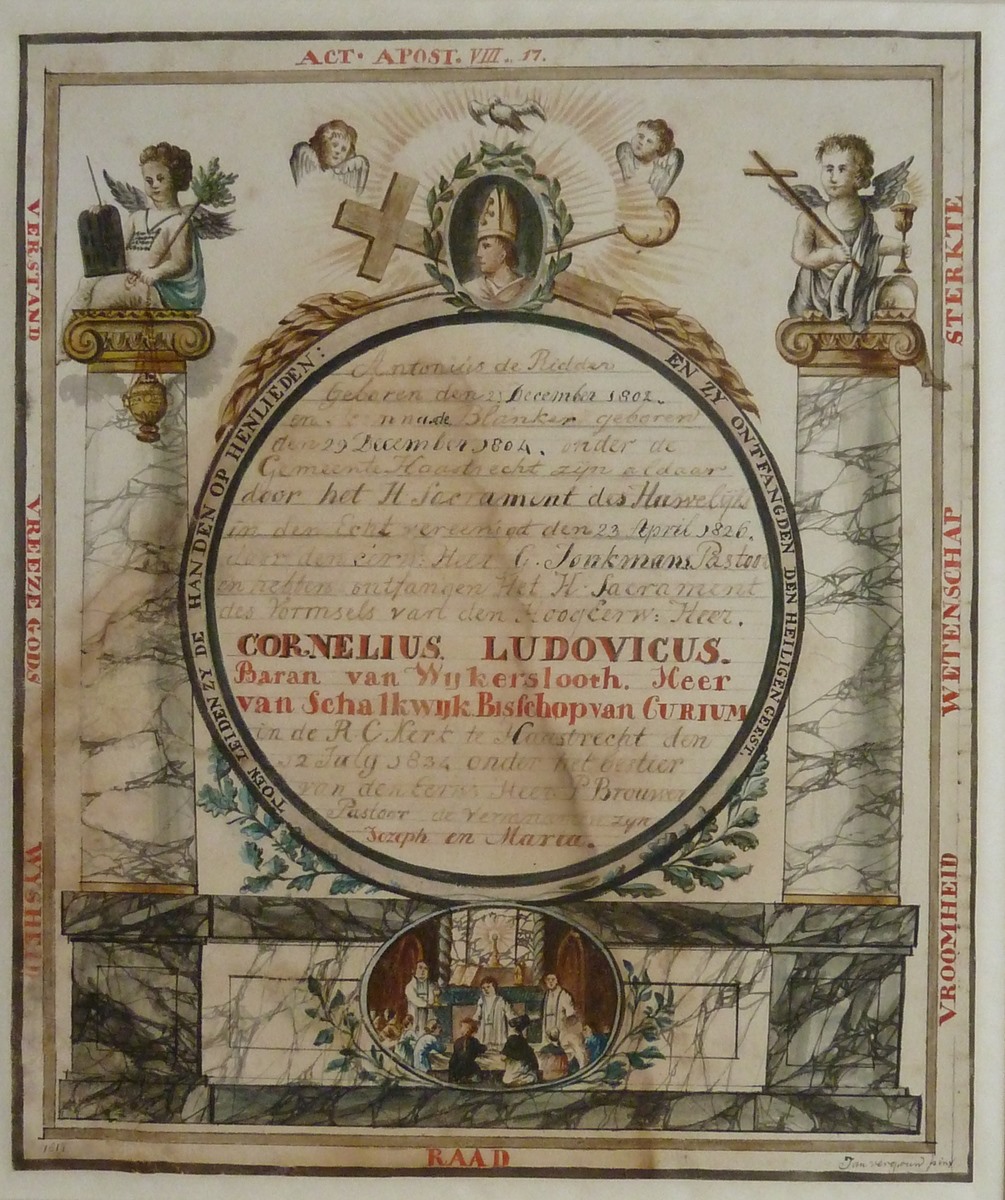 ACT. APOST. VIII. 17.
VERSTAND
VREEZE GODS
WYSHEID
STERKTE
WETENSCHAP
VROOMHEID
TOEN LEIDEN ZY DE HANDEN OP HENLIEDEN:
EN ZY ONTFANGDEN DEN HEILIGEN GEEST
Antonius de Ridder
Geboren den 21 December 1802.
en de Blanker geboren
den 29 December 1804. onder de
Gemeente Haastrecht zijn aldaar
door het H Sacrament des Huwelijks
in den Echt vereenigd den 23 April 1826.
door den Eerw: Heer G. Jonkmans Pastoor
en hebben ontfangen Het H: Sacrament
des Vormsels van den HoogEerw: Heer.
CORNELIUS LUDOVICUS.
Baran van Wijkerslooth. Heer
van Schalkwijk Bisschop van CURIUM
in de R.C Kerk te Haastrecht den
12 July 1834 onder het bestier
van den Eerw Heer P Brouwer
Pastoor de Vormnamen zijn
Jozeph en Maria.
RAAD
Jan vergouw pinx